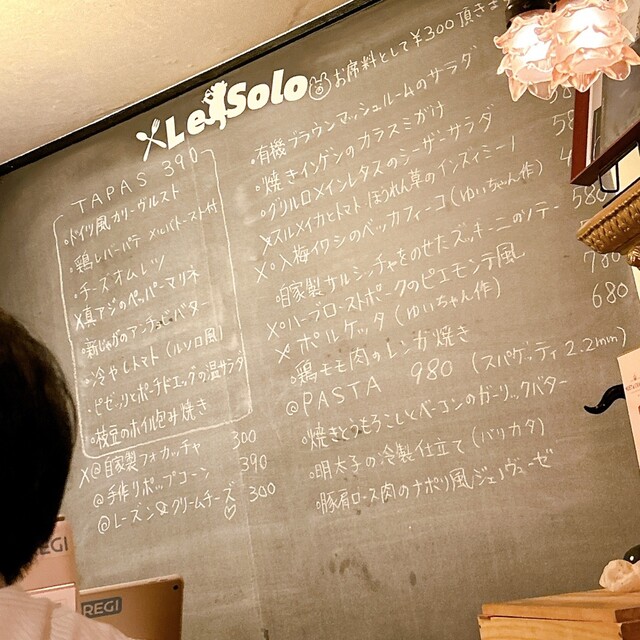 Le Solo
お席料として¥300頂きま
TAPAS 390
・ドイツ風カリーヴルスト
・鶏レバーパテ メルバトースト付
・チーズオムレツ
×真アジのペッパーマリネ
・新じゃがのアンチョビバター
・冷やしトマト(ルソロ風)
・ピゼッリとポーチドエッグの温サラダ
・枝豆のホイル包み焼き
×@自家製フォカッチャ 300
@手作りポップコーン 390
@レーズン&クリームチーズ 300
・有機ブラウンマッシュルームのサラダ
・焼きインゲンのカラスミがけ
・グリルロメインレタスのシーザーサラダ
×スルメイカとトマト ほうれん草のインズィミーノ
×○入梅イワシのベッカフィーコ(ゆいちゃん作) 580
・自家製サルシッチャをのせたズッキーニのソテー 780
×○ハーブローストポークのピエモンテ風 680
×ポルケッタ(ゆいちゃん作)
・鶏モモ肉のレンガ焼き
@PASTA 980 (スパゲッティ2.2mm)
・焼きとうもろこしとベーコンのガーリックバター
・明太子の冷製仕立て(バリカタ)
・豚肩ロース肉のナポリ風ジェノヴェーゼ
REGI
REGI